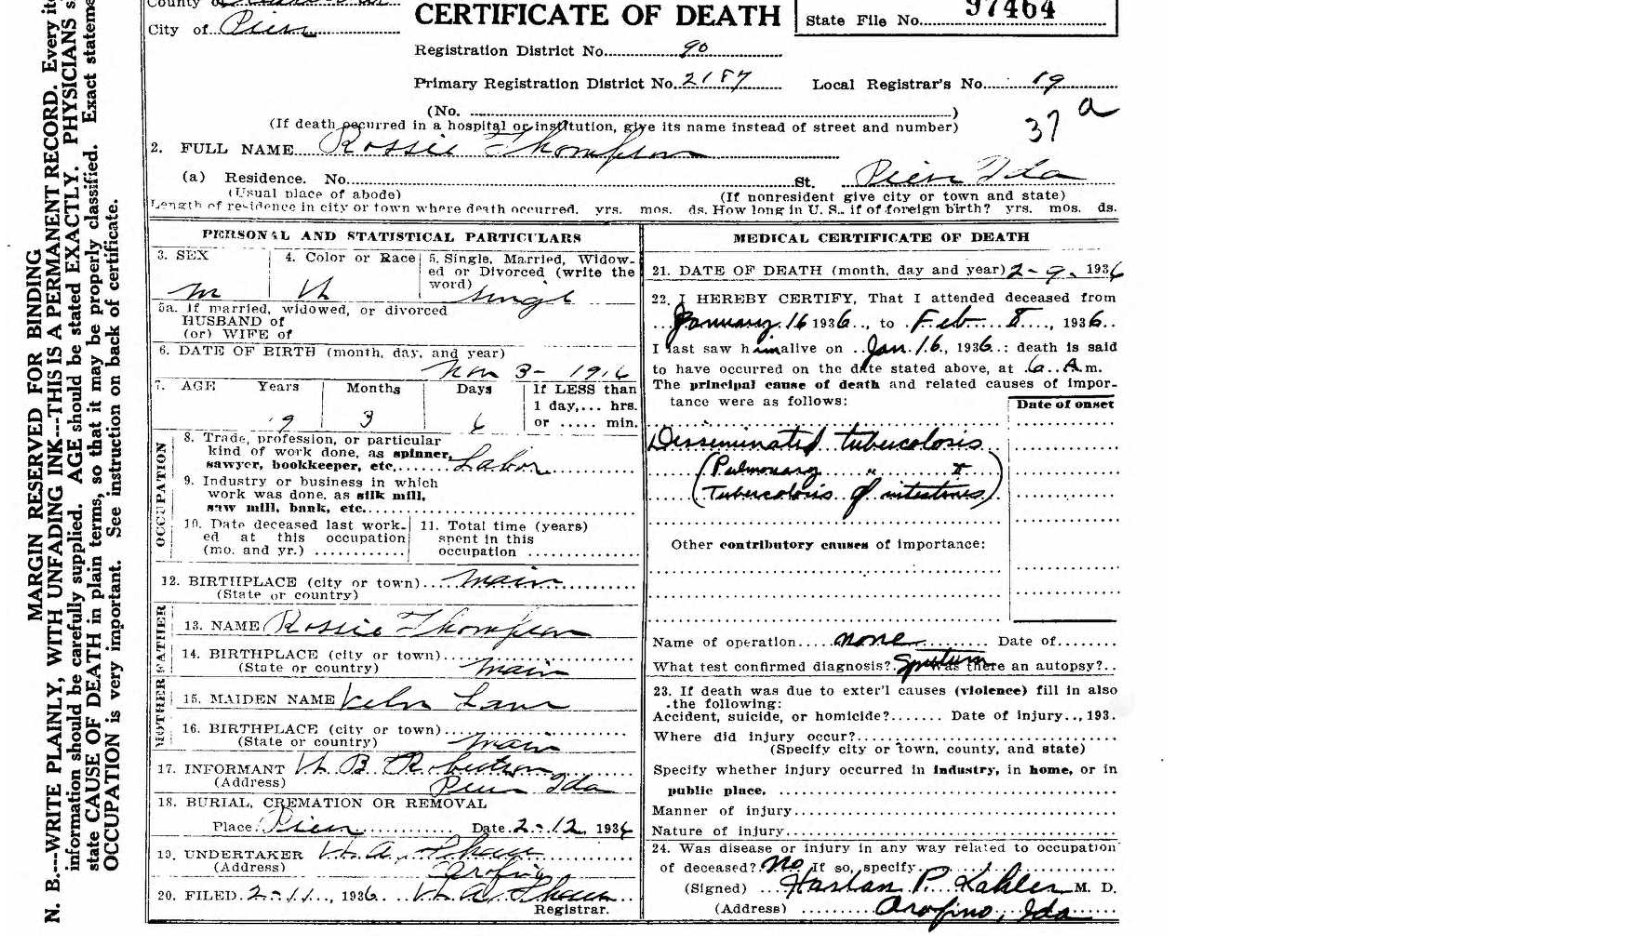 County of
City of
CERTIFICATE OF DEATH
State File No. 97464
Registration District No. 90
Primary Registration District No. 2187 Local Registrar's No. 19
(No. )
(If death occurred in a hospital or institution, give its name instead of street and number)
37 a
2. FULL NAME Rossie Thompson
(a) Residence. No. St. Ida
(Usual place of abode) (If nonresident give city or town and state)
Length of residence in city or town where death occurred. yrs. mos. ds. How long in U. S., if of foreign birth? yrs. mos. ds.
PERSONAL AND STATISTICAL PARTICULARS
3. SEX
m
4. Color or Race
W
5. Single, Married, Widow-
ed or Divorced (write the
word)
Single
5a. If married, widowed, or divorced
HUSBAND of
(or) WIFE of
6. DATE OF BIRTH (month, day, and year)
Nov 3- 1916
7. AGE Years Months Days If LESS than
1 day,... hrs.
or ..... min.
19 3 6
OCCUPATION
8. Trade, profession, or particular
kind of work done, as spinner,
sawyer, bookkeeper, etc. Labor
9. Industry or business in which
work was done, as silk mill,
saw mill, bank, etc.
10. Date deceased last work-
ed at this occupation
(mo. and yr.)
11. Total time (years)
spent in this
occupation
12. BIRTHPLACE (city or town) Main
(State or country)
FATHER
13. NAME Rossie Thompson
14. BIRTHPLACE (city or town)
(State or country) Main
MOTHER
15. MAIDEN NAME
16. BIRTHPLACE (city or town)
(State or country) Main
17. INFORMANT W B Robertson
(Address) Ida
18. BURIAL, CREMATION OR REMOVAL
Place Date 2-12, 1936
19. UNDERTAKER
(Address) Orofino
20. FILED 2-11, 1936
Registrar.
MEDICAL CERTIFICATE OF DEATH
21. DATE OF DEATH (month, day and year) 2-9, 1936
22. I HEREBY CERTIFY, That I attended deceased from
January 16 1936, to Feb 8, 1936
I last saw him alive on Jan. 16, 1936: death is said
to have occurred on the date stated above, at 6 A m.
The principal cause of death and related causes of impor-
tance were as follows:
Date of onset
Disseminated tubercolosis
(Pulmonary " +
Tubercolosis of intestines)
Other contributory causes of importance:
Name of operation none Date of
What test confirmed diagnosis? Sputum Was there an autopsy?
23. If death was due to exter'l causes (violence) fill in also
the following:
Accident, suicide, or homicide? Date of injury.., 193.
Where did injury occur?
(Specify city or town, county, and state)
Specify whether injury occurred in industry, in home, or in
public place.
Manner of injury
Nature of injury
24. Was disease or injury in any way related to occupation
of deceased? No If so, specify
(Signed) Harlan P. Kahler M. D.
(Address) Orofino, Ida
MARGIN RESERVED FOR BINDING
N. B.---WRITE PLAINLY, WITH UNFADING INK---THIS IS A PERMANENT RECORD. Every
information should be carefully supplied. AGE should be stated EXACTLY. PHYSICIANS
state CAUSE OF DEATH in plain terms, so that it may be properly classified. Exact
OCCUPATION is very important. See instruction on back of certificate.